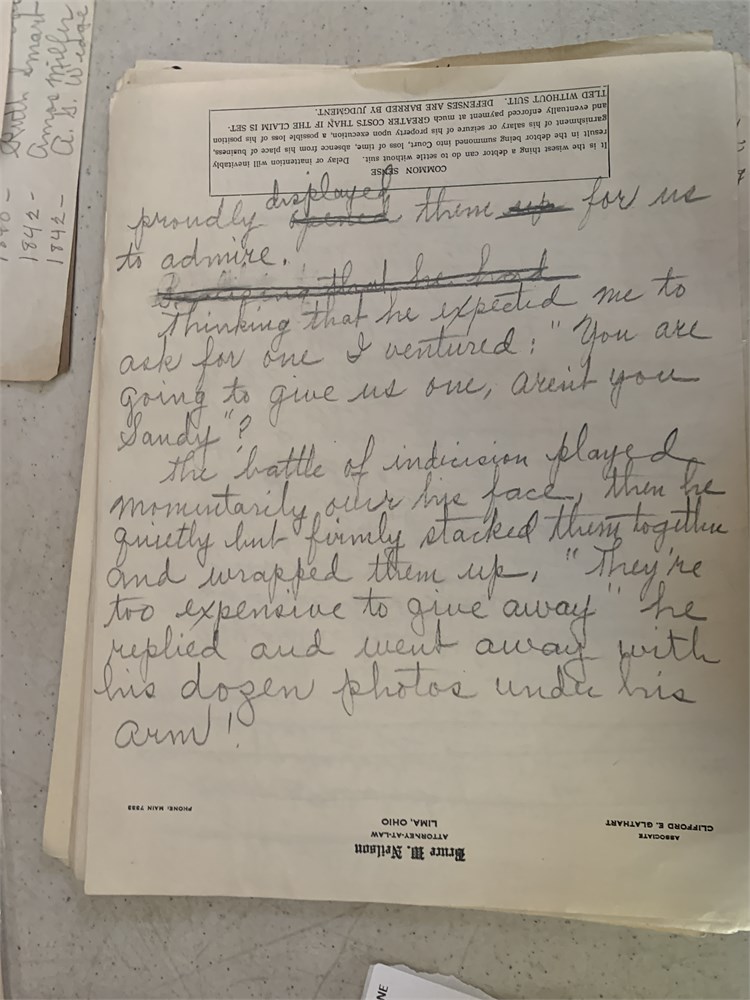 Ruth Smart
Amos Miller
A. G. Wedge
1842-
1842-
COMMON SENSE
It is the wisest thing a debtor can do to settle without suit. Delay or inattention will inevitably
result in the debtor being summoned into Court, loss of time, absence from his place of business,
garnishment of his salary or seizure of his property upon execution, a possible loss of his position
and eventually enforced payment at much GREATER COSTS THAN IF THE CLAIM IS SET-
TLED WITHOUT SUIT. DEFENSES ARE BARRED BY JUDGMENT.
displayed
proudly opened them up for us
to admire.
Realizing that he had
Thinking that he expected me to
ask for one I ventured: "You are
going to give us one, aren't you
Sandy"?
The battle of indicision played
momentarily over his face, then he
quietly but firmly stacked them together
and wrapped them up, "They're
too expensive to give away" he
replied and went away with
his dozen photos under his
arm!
PHONE: MAIN 7855
Bruce W. Neilson
ATTORNEY-AT-LAW
LIMA, OHIO
ASSOCIATE
CLIFFORD E. GLATHART
NE